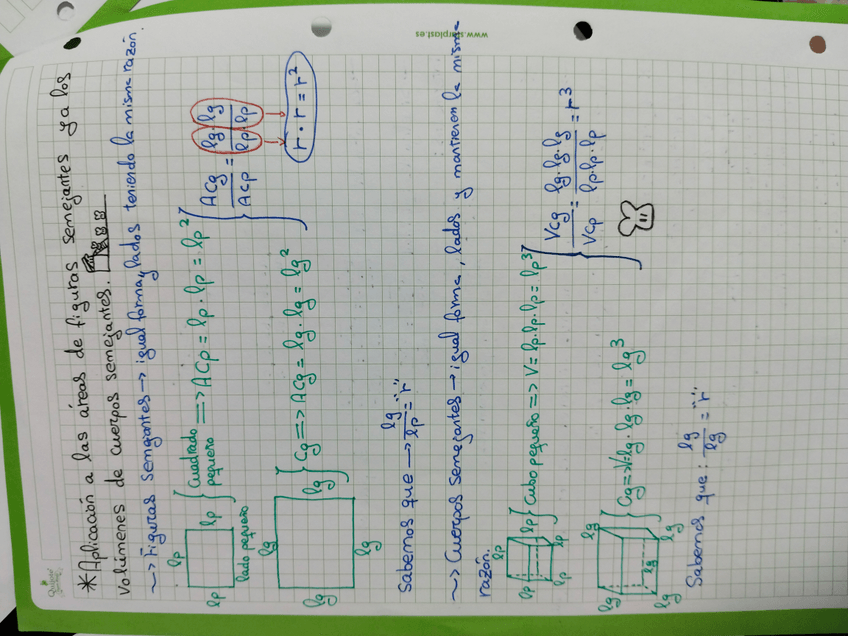 *Aplicación a las áreas de figuras semejantes y a los
volúmenes de cuerpos semejantes.
~> Figuras semejantes → igual forma y lados teniendo la misma razón.
lp
lp
lp
lado pequeño
Cuadrado pequeño => ACp = lp · lp = lp²
lg
lg
lg
Cg => ACg = lg · lg = lg²
ACg/ACp = lg·lg/lp·lp
r · r = r²
Sabemos que → lg/lp = "r"
~> Cuerpos semejantes → igual forma, lados y mantienen la misma
razón.
lp
lp
lp
lp
lp
Cubo pequeño => V = lp · lp · lp = lp³
lg
lg
lg
lg
lg
Cg => V = lg · lg · lg = lg³
Vcg/Vcp = lg·lg·lg/lp·lp·lp = r³
Sabemos que: lg/lg = "r"
www.starplast.es